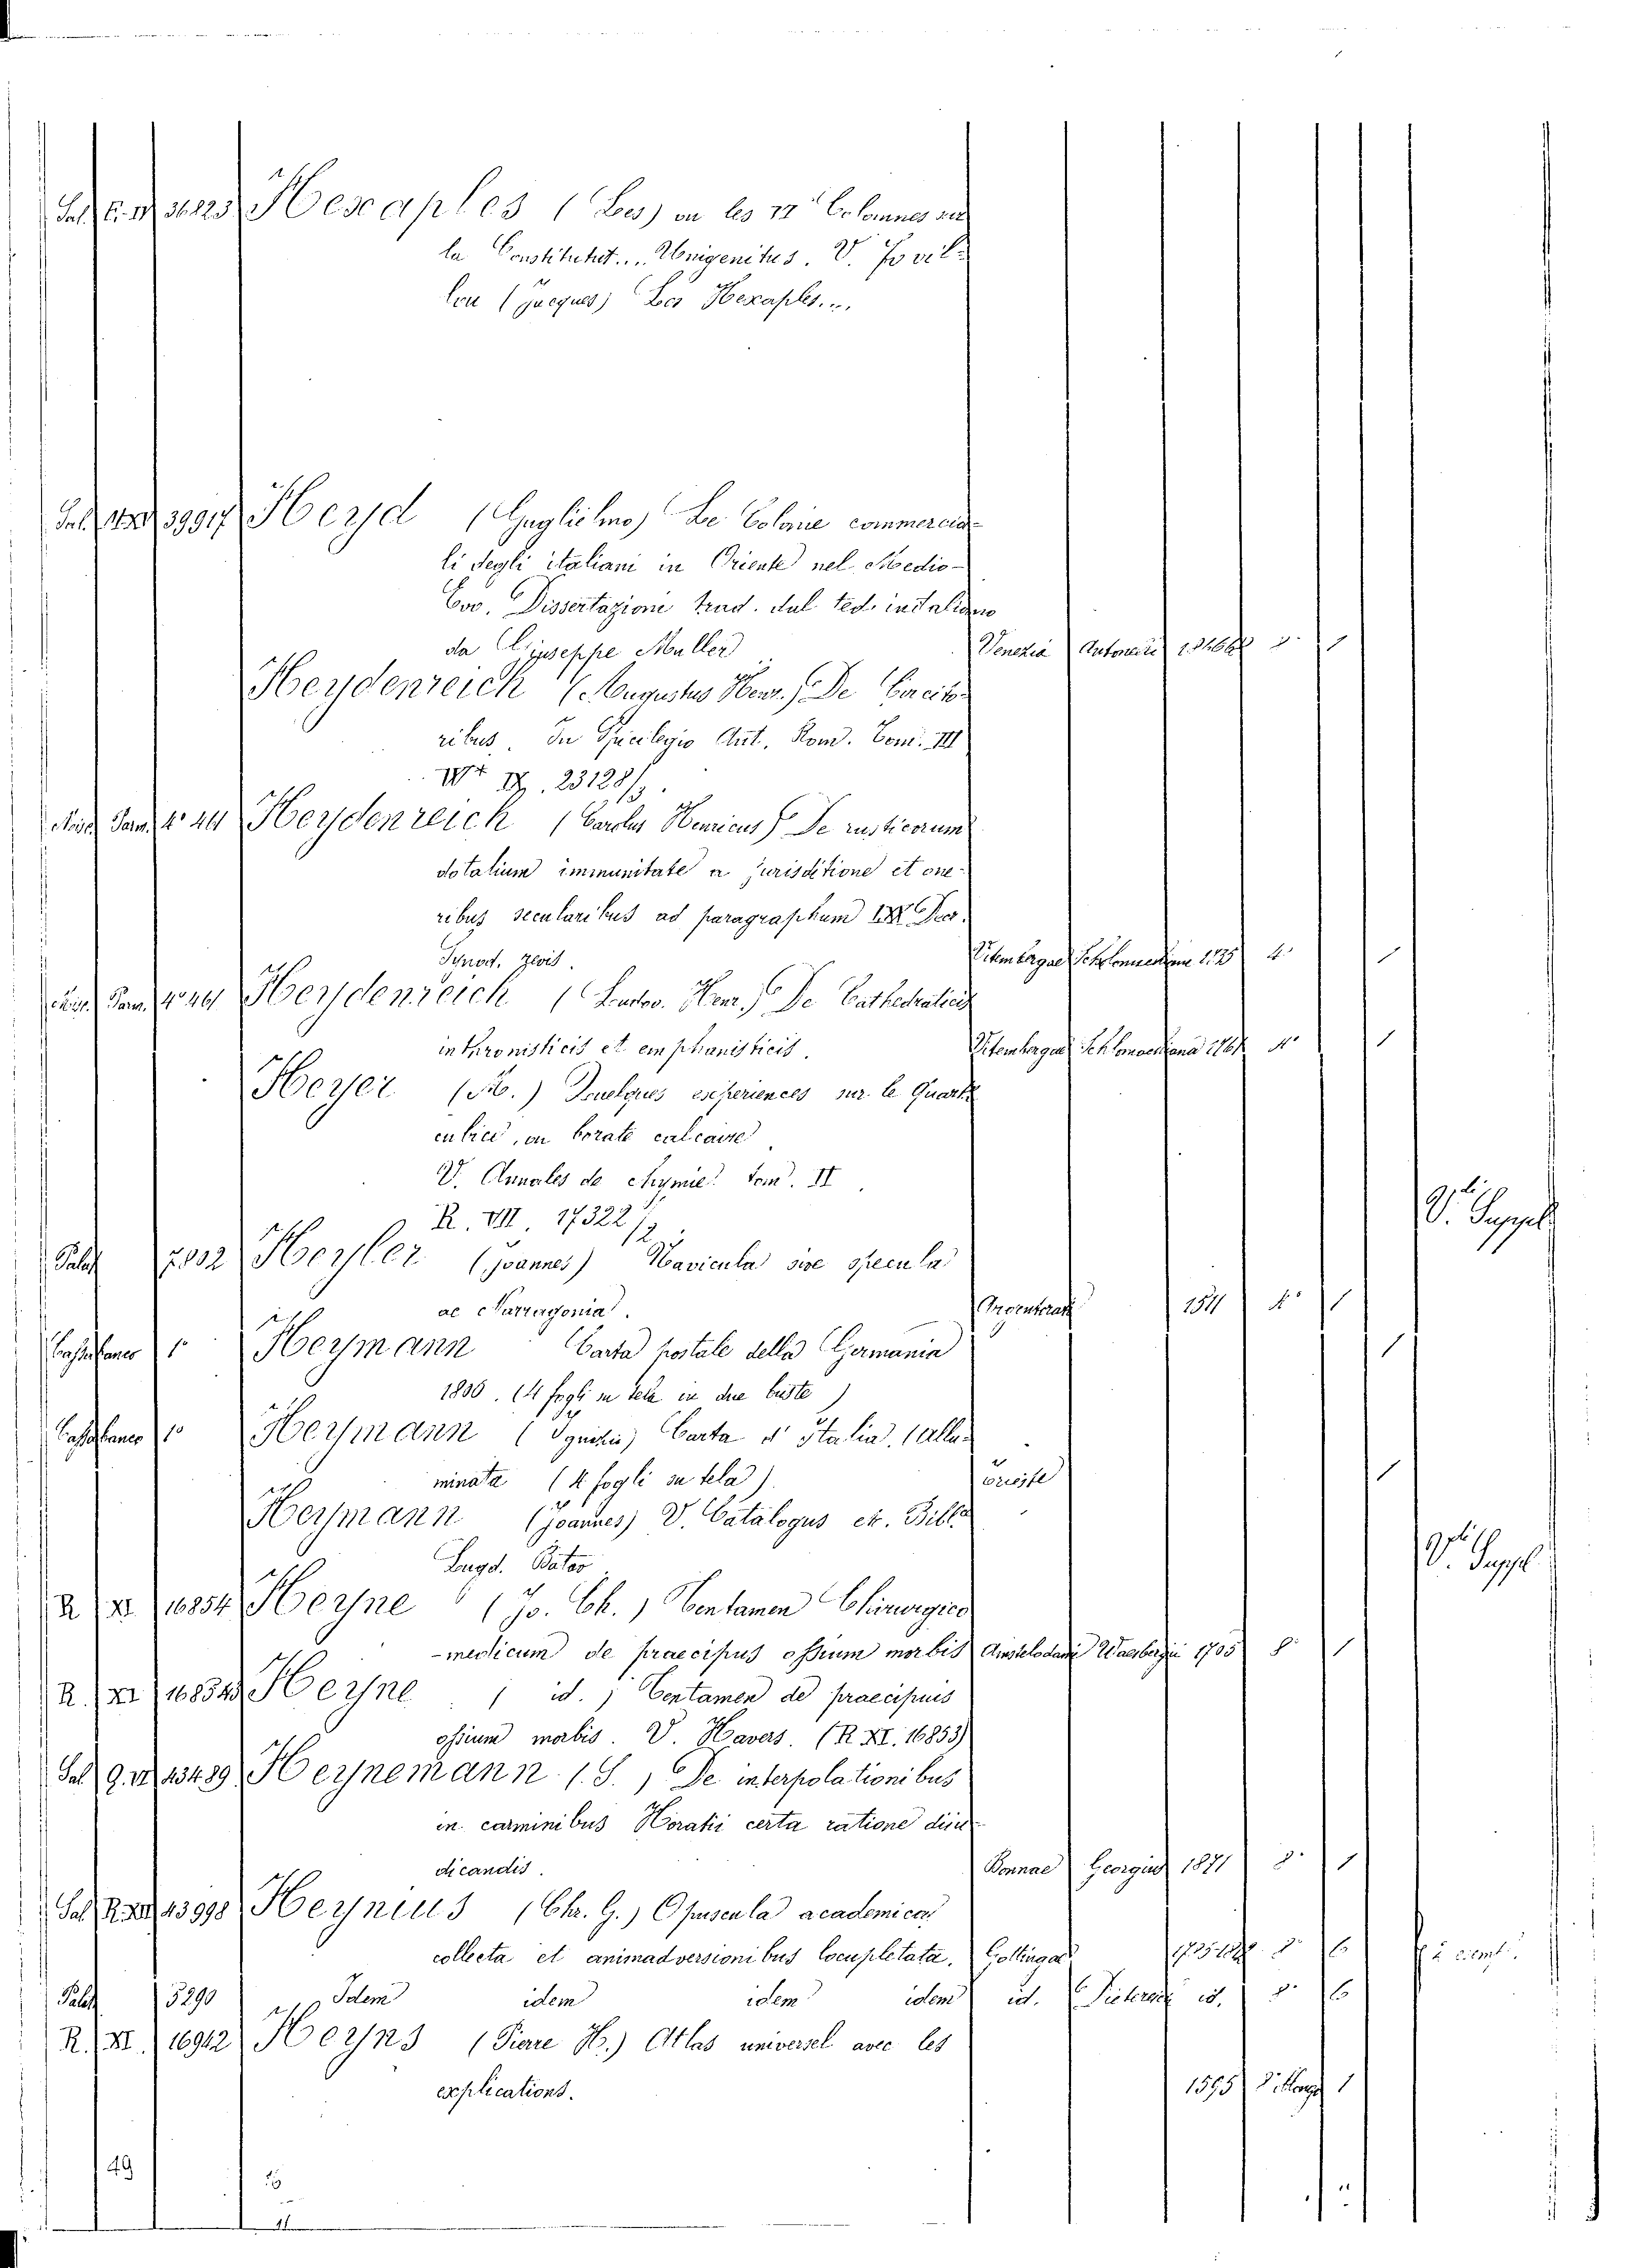 Sal. E. IV 36225 Hescaples (Les) ou les 12 Colonnes sur
la Constitutut... Unigenitus. V. Fovil-
lou (Jacques) Les Hexaples...
Sal. 39917 Heyd (Guglielmo) Le Colonie commercia-
li degli italiani in Oriente nel Medio-
Evo. Dissertazioni trad. dal ted. in italiano
da Giuseppe Muller Venezia Antonelli 1866 8° 1
Heydenreich (Augustus Henr.) De Circito-
ribus. In Spicilegio Ant. Rom. Tom. III
23128/3.
Misc. Pam. 4° 44 Heydenreich (Carolus Henricus) De rusticorum
dotalium immunitate a jurisditione et one-
ribus secularibus ad paragraphum
Synod. Vitembergae 4° 1
Misc. Pam. 4° 46 Heydenreich (Ludov. Henr.) De Cathedraticis
inthronisticis et emphanisticis. Vitembergae 4° 1
Heyer (M.) Quelques escheriences sur le Quartz
cubice, ou borate calcaire
V. Annales de chymie tom. II
R. VIII. 17322/2.
V. Suppl.
Palat. 7802 Heyler (Joannes) Navicula sive specula
ac Narragonia. Argentorati 1511 4° 1
1° Heymann Carta postale della Germania
1836. (4 fogli in tela in due buste) 1
1° Heymann (Ignazio) Carta d'Italia. (Allu-
minata (4 fogli su tela) Trieste 1
Heymann (Joannes) V. Catalogus etc. Bibl.
Lugd. Batav.
V. Suppl.
R. XI 16854 Heyne (Jo. Ch.) Tentamen Chirurgico
-medicum de praecipus ossium morbis Amstelodami Waesbergii 1705 8° 1
R. XI 16854 Heyne (id.) Tentamen de praecipuis
ossium morbis. V. Havers. (R. XI. 16853)
Sal. 9. 43489 Heynemann (S.) De interpolationibus
in carminibus Horatii certa ratione diiu-
dicandis. Bonnae Georgius 1871 8° 1
Sal. 43998 Heynius (Chr. G.) Opuscula academica
collecta et animadversionibus locupletata. Gottingae 8° 6
Palat. 15290 Idem idem idem idem id. Dieterich id. 8° 6
R. XI. 16942 Heyns (Pierre H.) Atlas universel avec les
explications. 1595 1
49